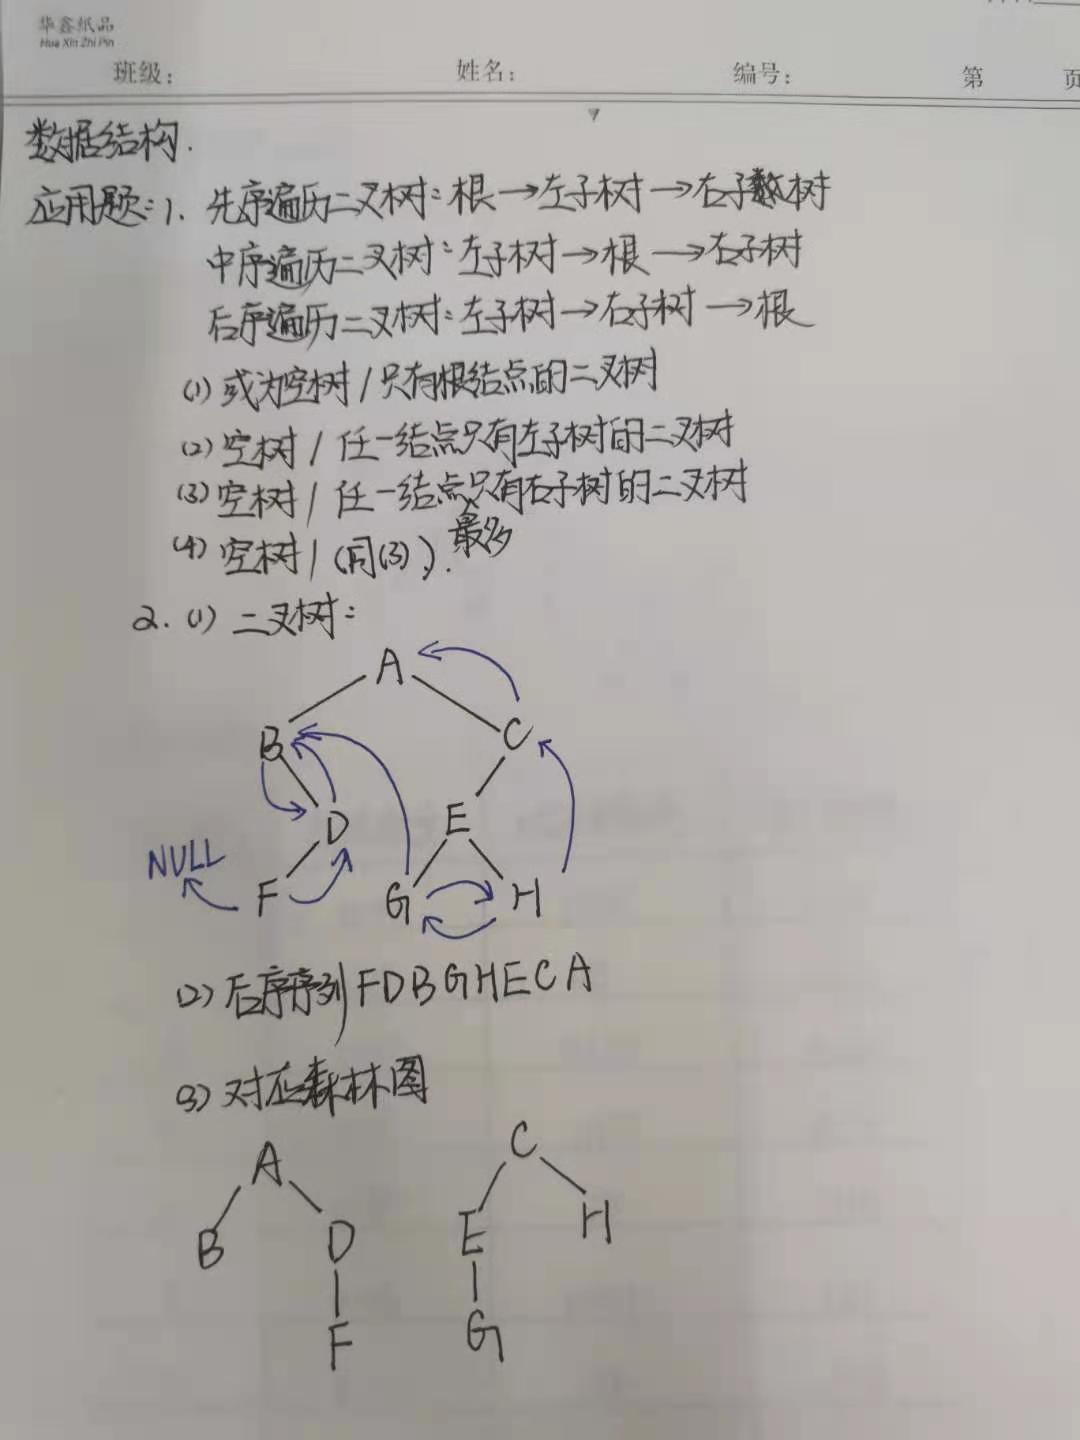 华鑫纸品
Hua Xin Zhi Pin
班级： 姓名： 编号： 第 页
数据结构.
应用题:1. 先序遍历二叉树:根→左子树→右子树
中序遍历二叉树:左子树→根→右子树
后序遍历二叉树:左子树→右子树→根
(1) 或为空树/只有根结点的二叉树
(2) 空树/任一结点只有左子树的二叉树
(3) 空树/任一结点只有右子树的二叉树
最多
(4) 空树/(同(3)).
2. (1) 二叉树:
A
B C
D E
NULL
F G H
(2) 后序序列FDBGHECA
(3) 对应森林图
A C
B D E H
F G